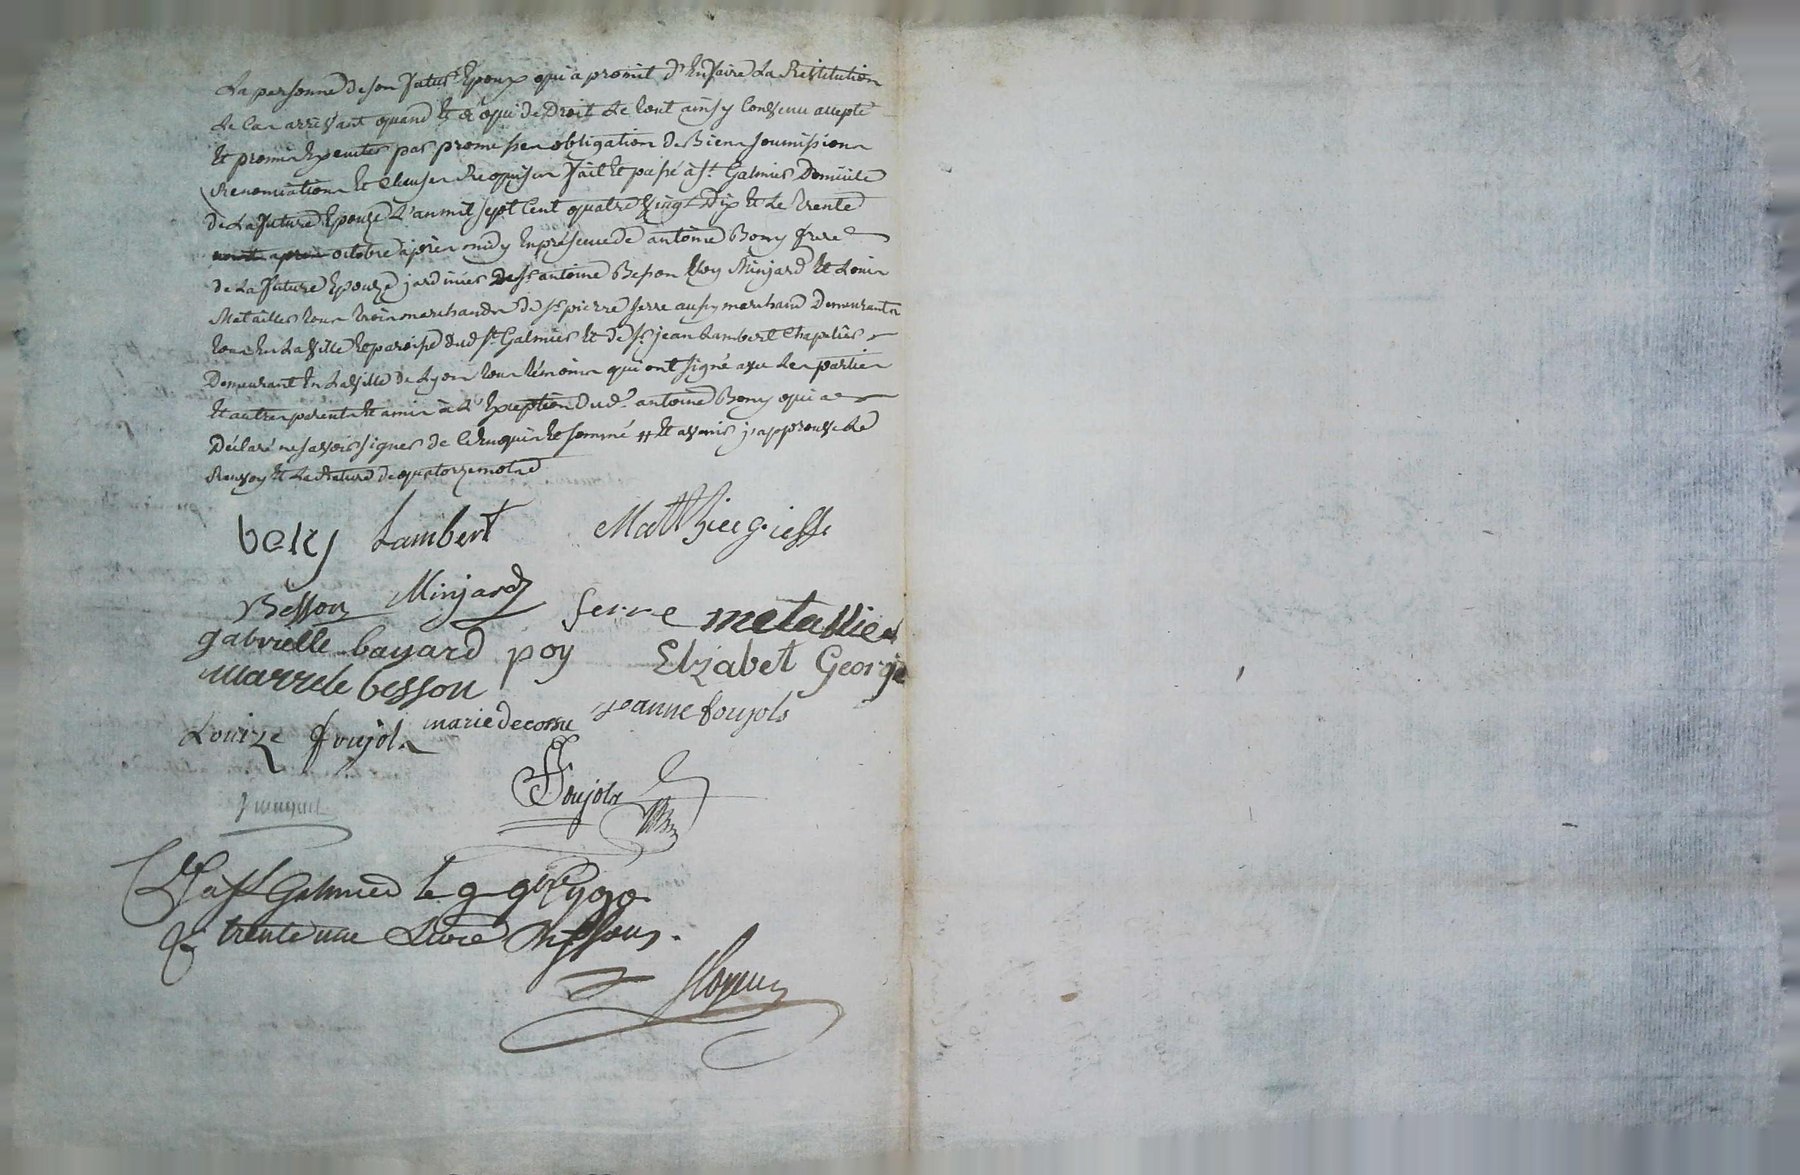 La personne de son futur Epoux qui a promit d'En faire La Restitution
Le Cas arrivant quand Et a qui de Droit Le tout ainsy Convenu accepté
Et promis Executer par promesses obligation de Biens soumissions
Renonciations Et Clauses Requises fait Et passé à St. Galmier Domicile
De La future Epouze L'an mil sept Cent quatre Vingt Dix Et Le trente
octobre après midy En présence de antoine Bony frere
de La future Epouze jardinier De Sr antoine Besson Minjard Et Louis
Metailler tous trois marchands de Sr pierre serre aussy marchand Demeurants
tous En La Ville Et paroisse dud St. Galmier Et de Sr. jean Lambert Chapelier
Demeurant En La Ville de Lyon tous témoins qui ont signé avec Les parties
Et autres parents Et amis à L'Exception dud. antoine Bony qui a
Déclaré ne savoir signer de Ce Enquis Et sommé # Et avons j'approuve Le
Renvoy Et La Rature de quatorze mots
Lambert Matthieu
Besson Minjard serre metallier
gabrielle bayard poy Elizabet George
besson
Louize foujols marie decorne jeanne foujols
foujols
a St Galmier le 9 9bre 1790
trente une Livre sous.